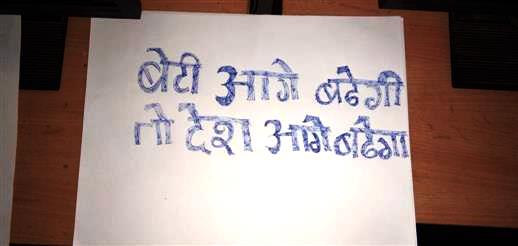 बेटी आगे बढेगी
तो देश आगे बढेगा